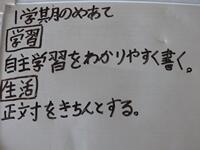 1学期のめあて
学習
自主学習をわかりやすく書く。
生活
正文寸をきちんとする。